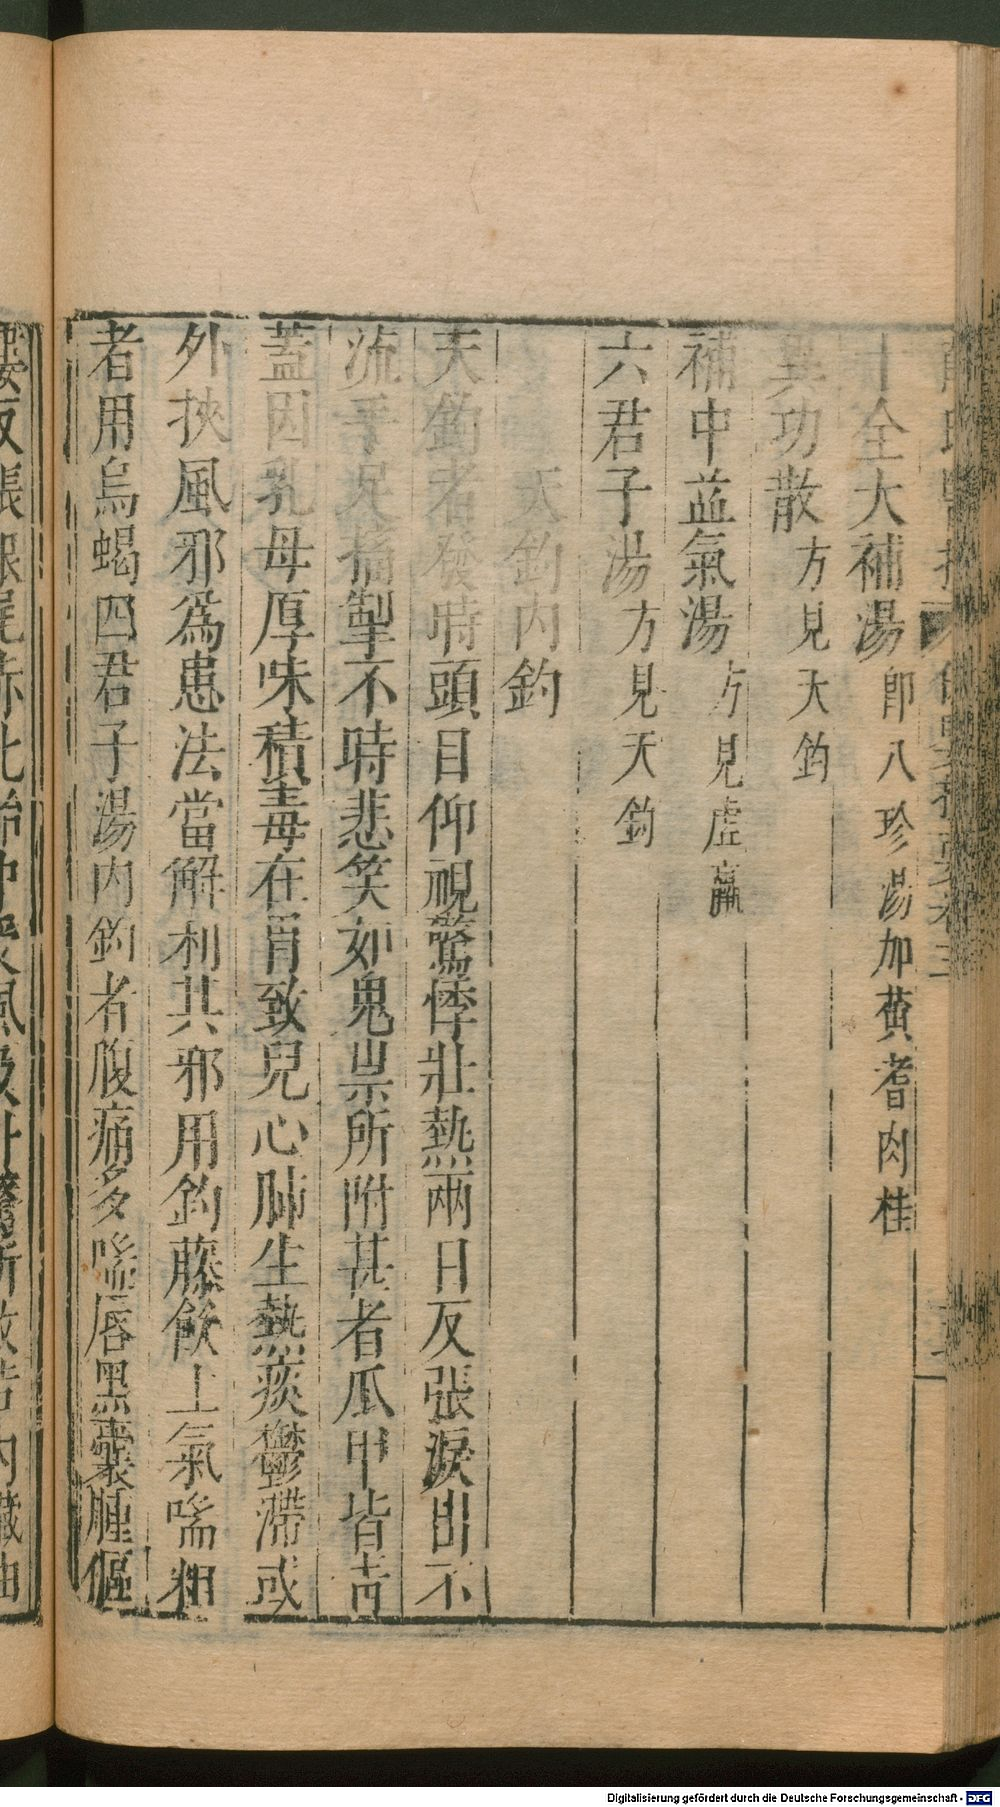 十全大補湯即八珍湯加黃耆肉桂
異功散方見天鈞
補中益氣湯方見虛羸
六君子湯方見天鈞
天鈞內鈞
天鈞者發時頭目仰視驚悸壯熱兩目反張淚出不
流手足搐掣不時悲笑如鬼祟所附甚者爪甲皆青
蓋因乳母厚味積毒在胃致兒心肺生熱痰鬱滯或
外挾風邪為患法當解利其邪用鈞藤飲上氣喘粗
者用烏蝎四君子湯內鈞者腹痛多喘唇黑囊腫傴
Digitalisierung gefördert durch die Deutsche Forschungsgemeinschaft - DFG